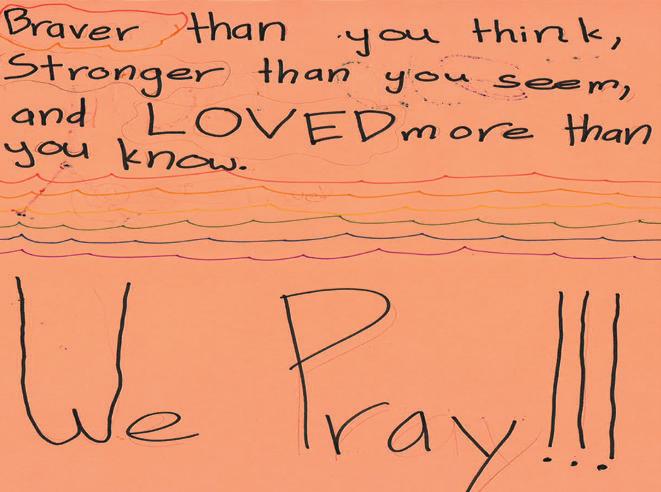 Braver than you think,
Stronger than you seem,
and LOVED more than
you know.
We Pray!!!